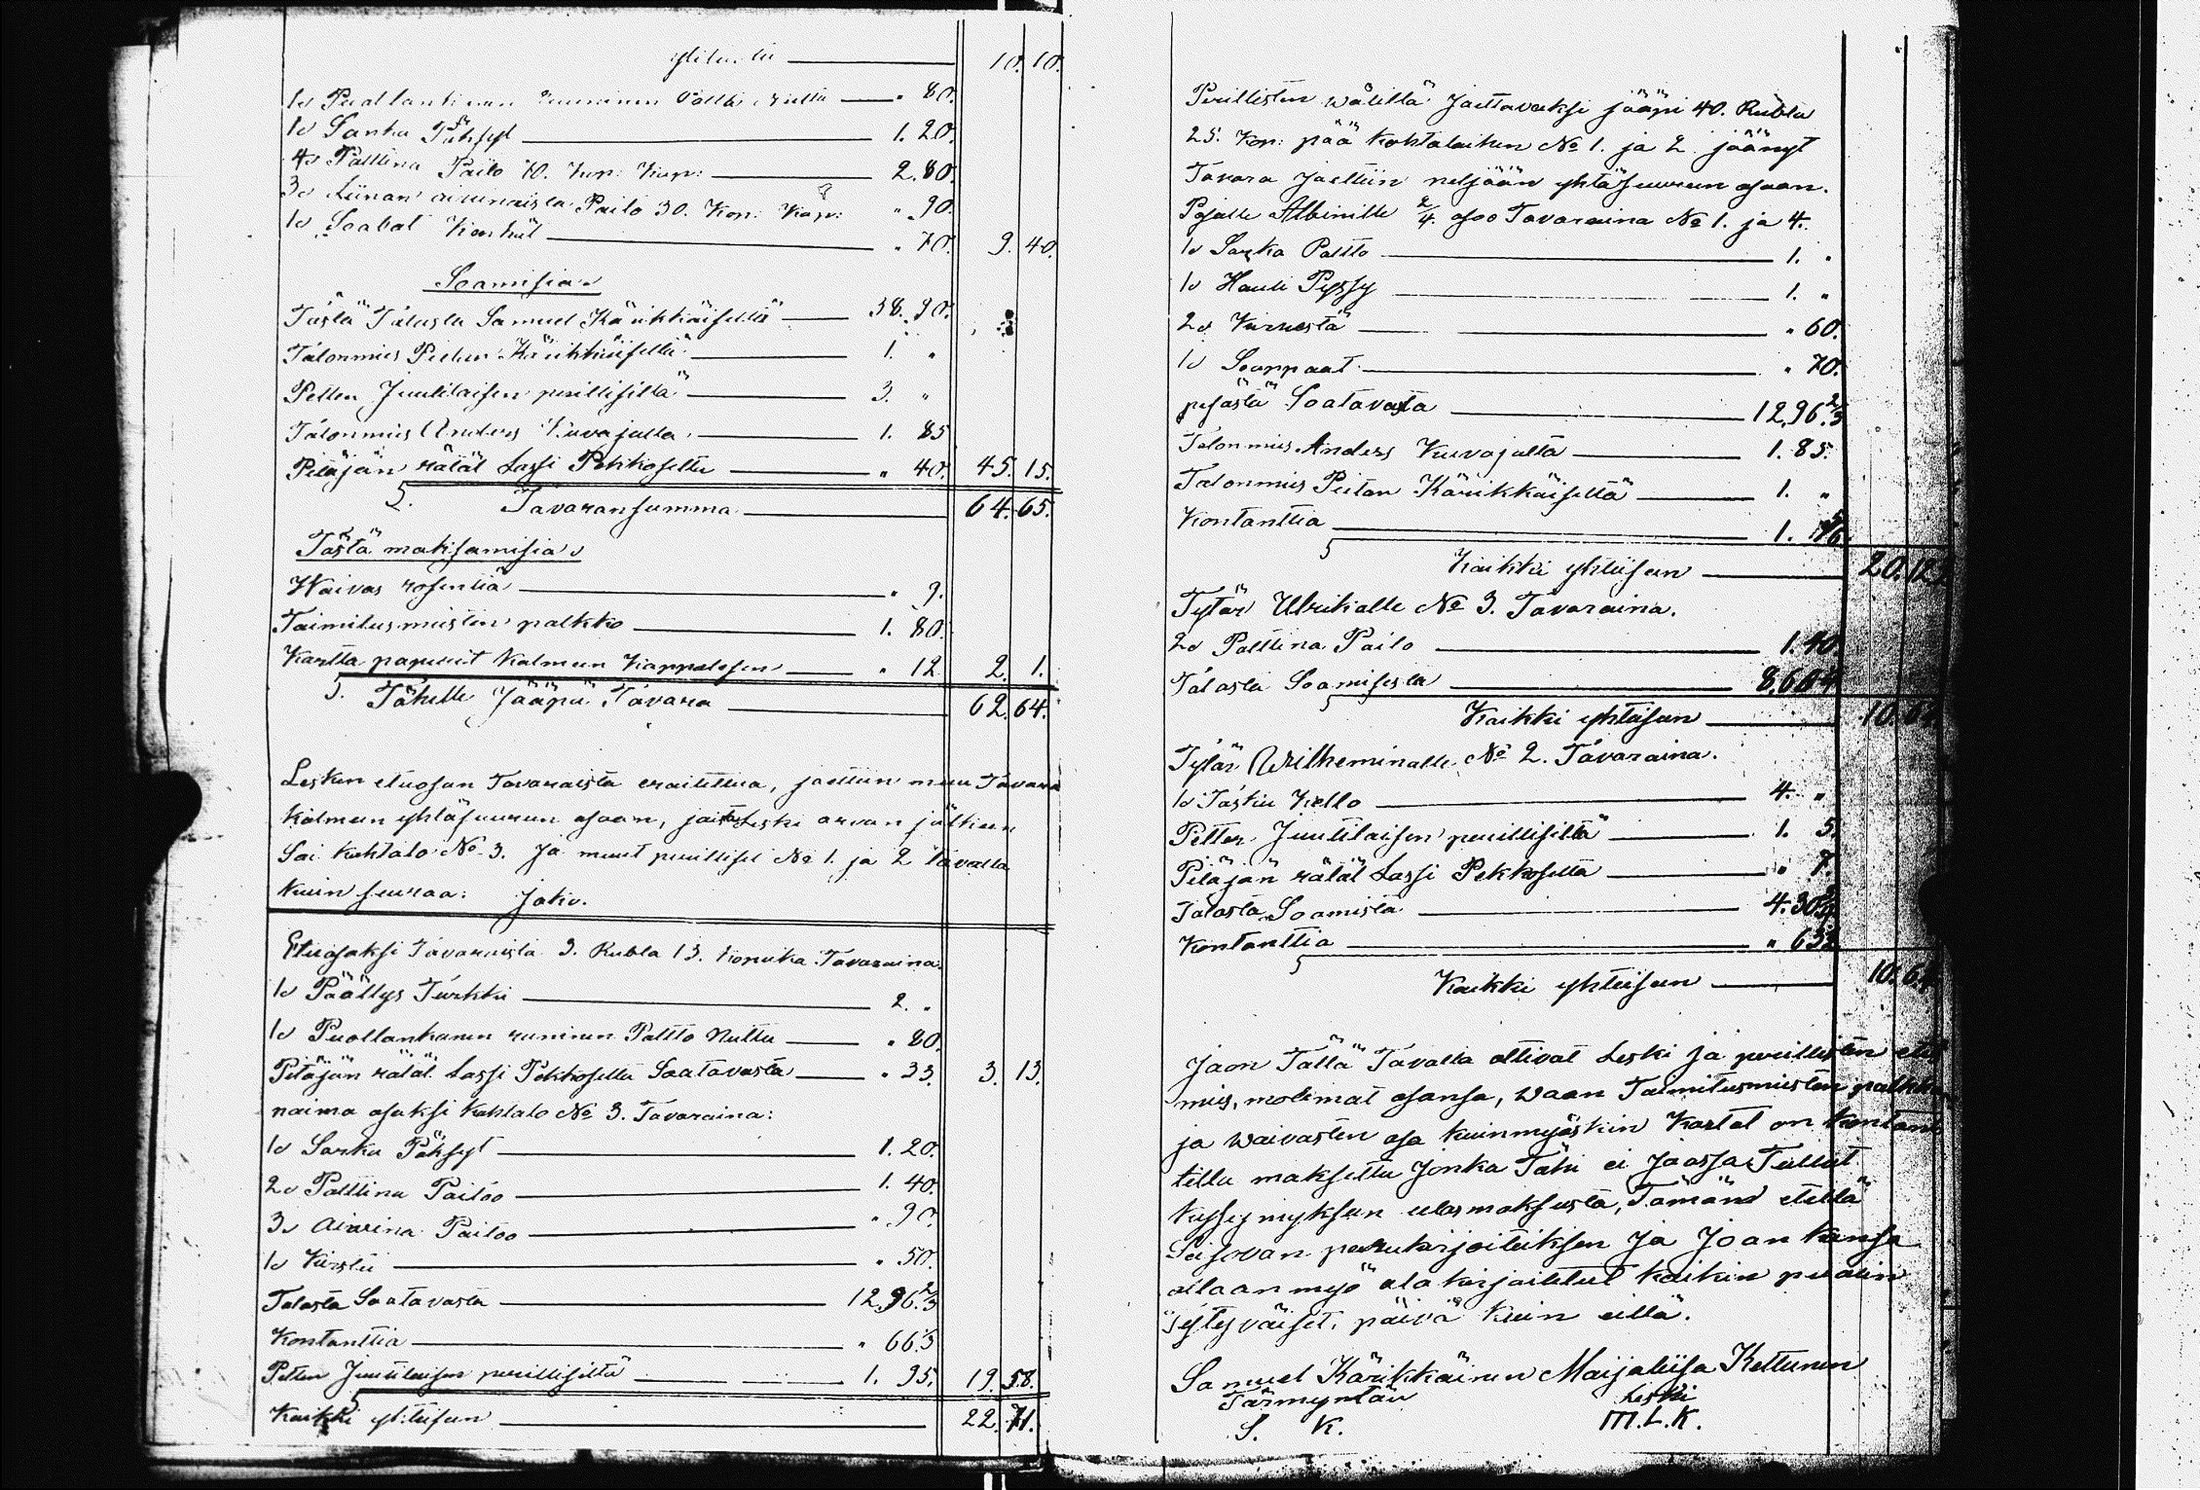 10. 10.
1d Puollankinen Palttò Nuttu — " 80.
1d Sarka Pöksyt — 1. 20.
4d Palttina Paito 70. Kop: Kap: — 2. 80.
3d Liinan aivinaista Paito 30. Kop: Kap: " 90.
1d Soabat Kengät — " 70. 9. 40.
Soamisia
Tästä Talosta Samuel Kärikkäiseltä — 38. 90.
Talonmies Pietar Kärikkäiseltä — 1. "
Petter Juutilaisen perillisiltä — 3. "
Talonmies Anders Kuvajalta — 1. 85
Pitäjän räätäl Lassi Pekkoselta — " 40. 45. 15.
S. Tavaransumma — 64. 65.
Tästä maksamisia
Waivas rosenttia — " 9.
Toimitusmiesten palkko — 1. 80.
Kartta paperit kolmeen kappaleesen — " 12 2. 1.
S. Tähelle Jääpi Tavara — 62. 64.
Lesken etuosan Tavaraista eraitettua, jaettiin muu Tavara
kolmeen yhtäsuureen osaan, joista Leski arvan jälkeen
Sai kohtalo No 3. Ja muut perilliset No 1. ja 2 tavalla
kuin seuraa: Jako.
Etuosaksi Tavaraista 3. Rubla 13. kopeika Tavaraina.
1d Päällys Turkki — 2. "
1d Puollankanen Palttò Nuttu — " 80.
Pitäjän räätäl Lassi Pekkoselta Saatavasta — " 33. 3. 13.
naima osaksi kohtalo No 3. Tavaraina:
1d Sarka Pöksyt — 1. 20.
2d Palttina Paitoo — 1. 40.
3d Aivina Paitoo — " 90.
1d Kirstu — " 50.
Talosta Saatavasta — 12. 96 2/3
Kontanttia — " 66 1/3
Petter Juutilaisen perillisiltä — 1. 95. 19. 58.
Kaikki yhteisen — 22. 71.
Perillisten wälillä Jaettavaksi jääpi 40. Rubla
25. Kop: pää kohtaloihen No 1. ja 2 jäänyt
Tavara Jaettiin neljään yhtäsuureen osaan.
Pojalle Albinille 2/4. osoo Tavaraina No 1. ja 4.
1d Sarka Paltto — 1. "
1d Hauli Pyssy — 1. "
2d — " 60.
1d Soappaat — " 70.
pesästä Soatavasta — 12,96 2/3
Talonmies Anders Kuvajalta — 1. 85.
Talonmies Pietar Kärikkäiseltä — 1. "
Kontanttia — 1.
Kaikki yhteisen — 20. 12
Tytär Ulrikalle No 3. Tavaraina.
2d Palttina Paito — 1. 40.
Talosta Soamisesta — 8,
Kaikki yhteisen — 10. 64
Tytär Wilheminalle No 2. Tavaraina.
1d Tasku kello — 4. "
Petter Juutilaisen perillisiltä — 1. 5.
Pitäjän räätäl Lassi Pekkoselta — " 7.
Talosta Soamista — 4. 30
Kontanttia — " 63
Kaikki yhteisen — 10. 64
Jaon Tällä Tavalla ottivat Leski ja perillisten
mies, molemat osansa, waan Toimitusmiesten palkka
ja waivasten osa kuinmyöskin kartat on kontan
tilla maksettu Jonka Tähi ei Jaossa Tullut
kysymykseen ulosmaksusta, Tämänd etellä
Seisovan perukirjoituksen Ja Joan kansa
ollaan myö ala kirjoitetut kaikin puolin
Tytyväiset, päivä kuin eillä.
Samuel Kärikkäinen Maijaliisa Kettunen
Färmyntäri Leski
S. K. M.L.K.